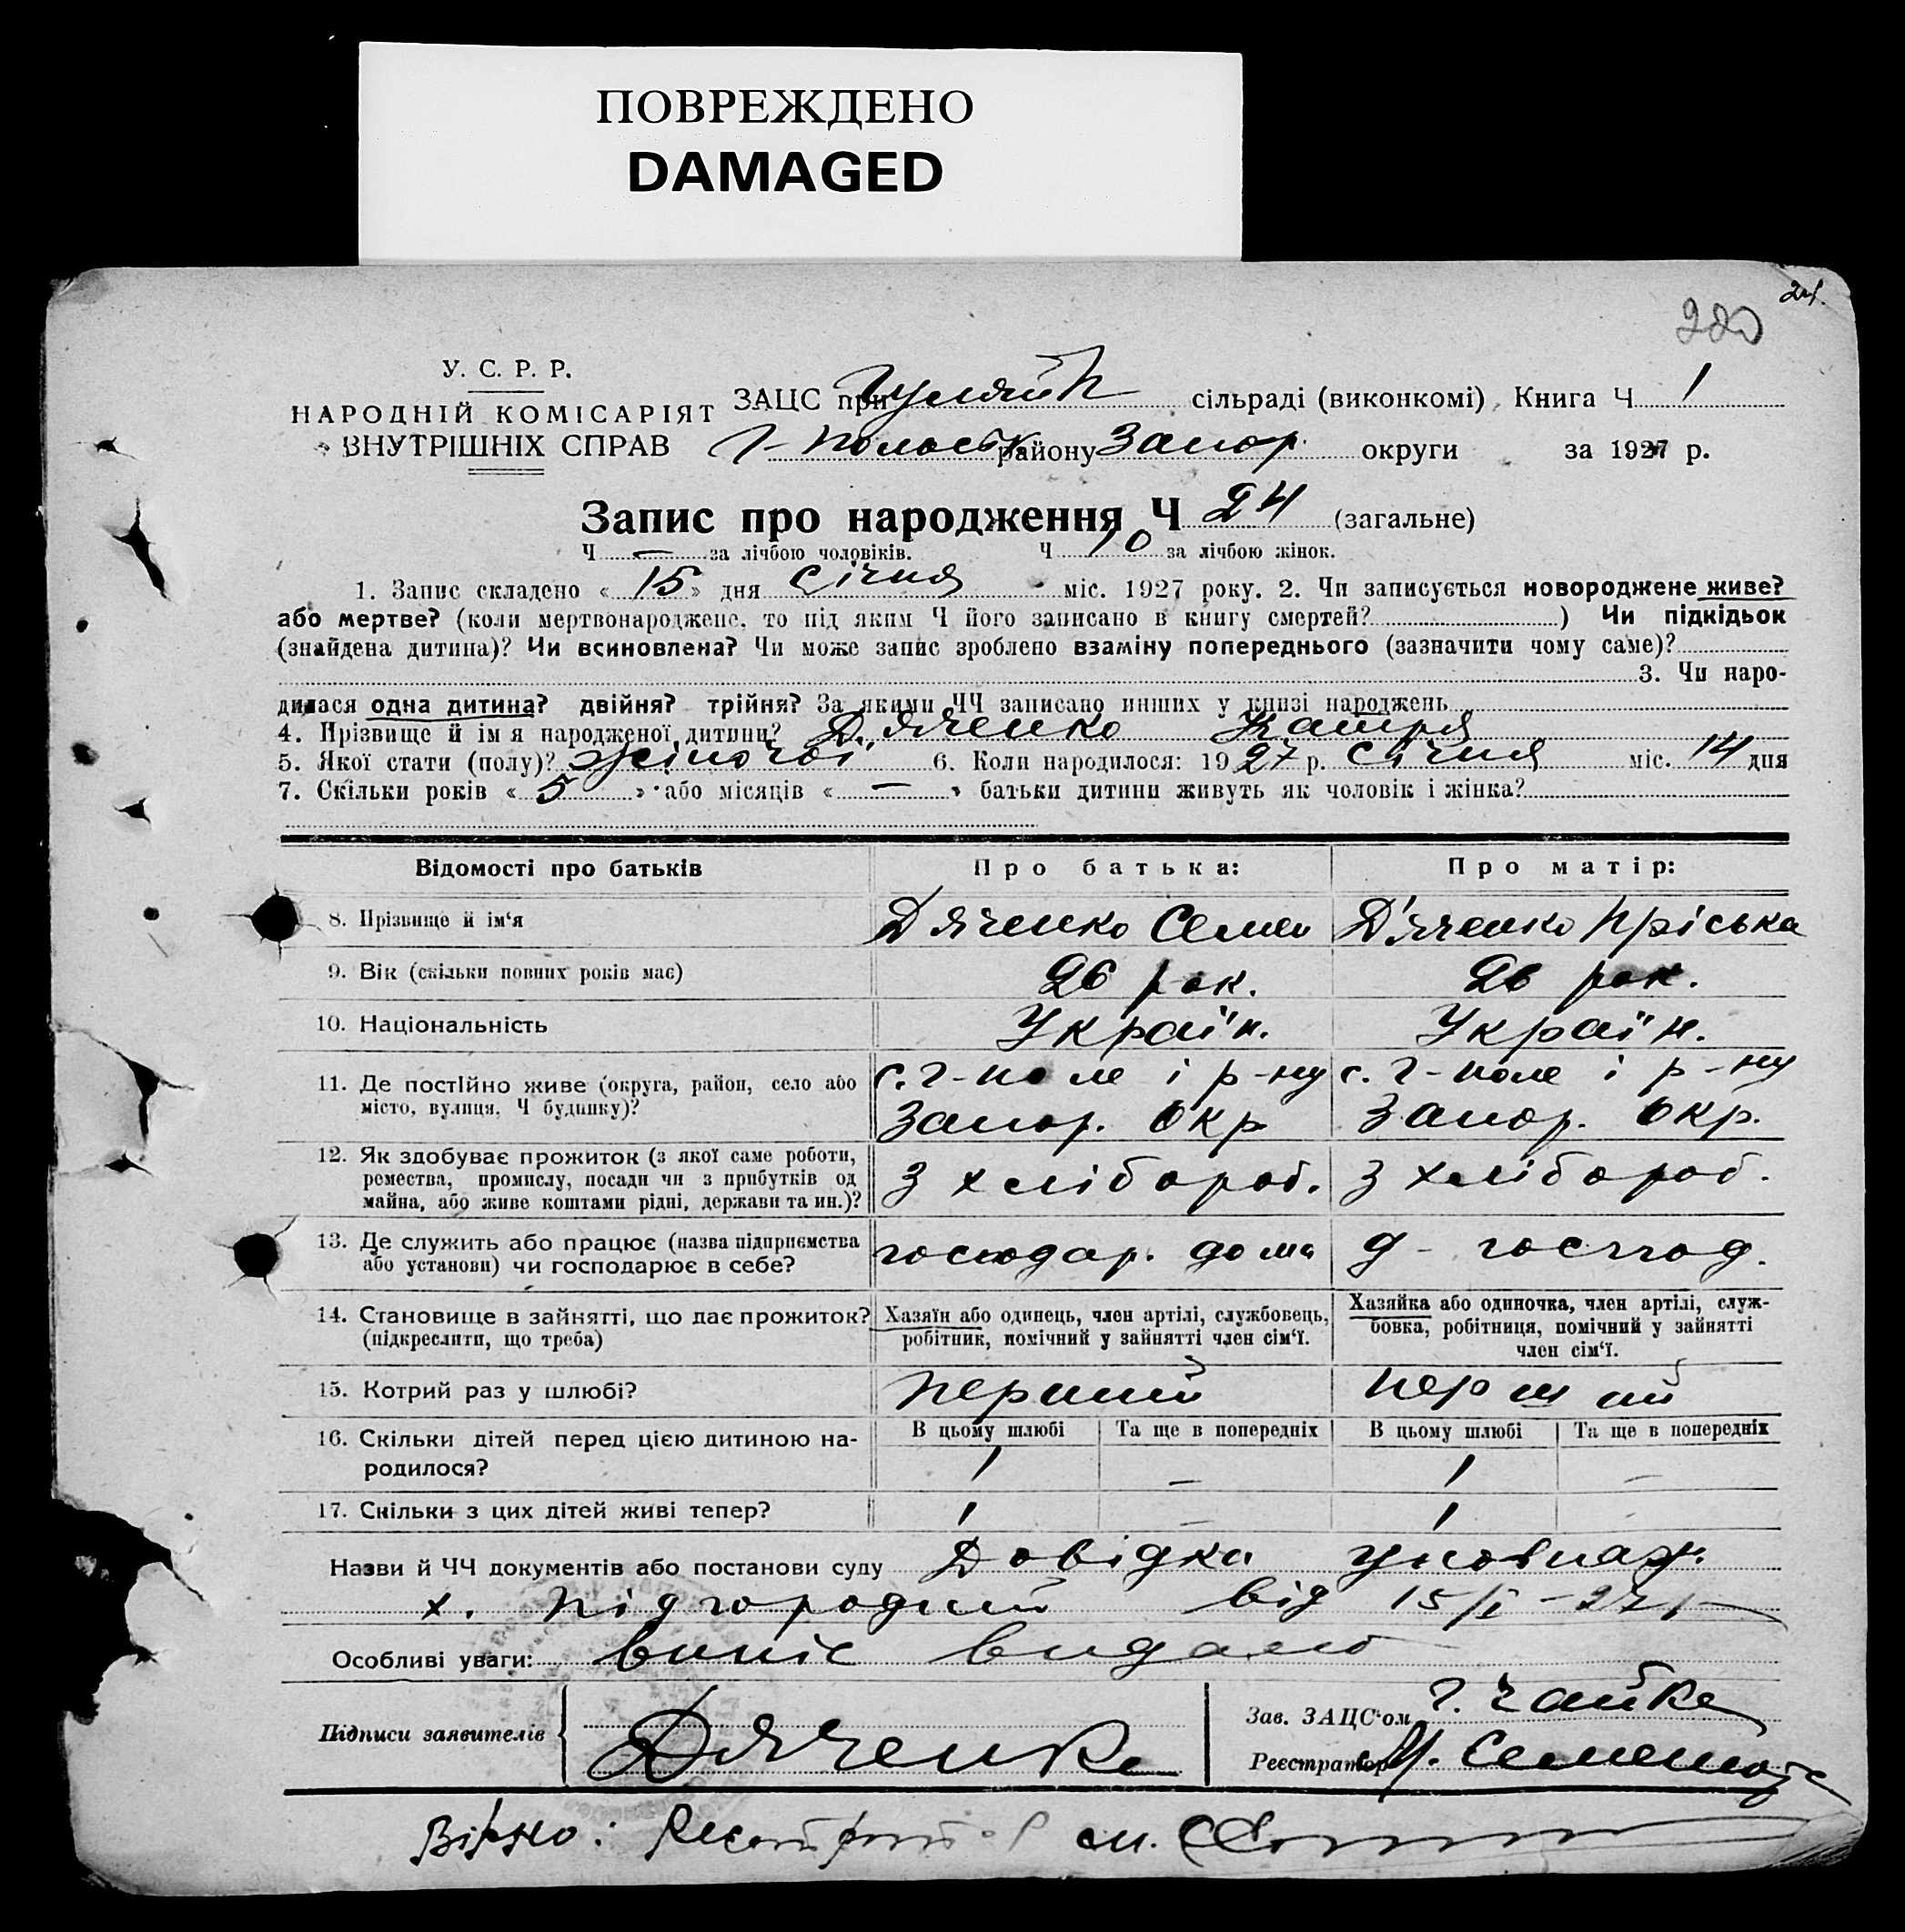 ПОВРЕЖДЕНО
DAMAGED
24.
220
У. С. Р. Р.
НАРОДНІЙ КОМІСАРІЯТ
ВНУТРІШНІХ СПРАВ
ЗАЦС при сільраді (виконкомі) Книга Ч 1
Г-Польськ району Запор. округи за 1927 р.
Запис про народження Ч 24 (загальне)
Ч — за лічбою чоловіків. Ч 10 за лічбою жінок.
1. Запис складено « 15 » дня січня міс. 1927 року. 2. Чи записується новороджене живе?
або мертве? (коли мертвонароджене, то під яким Ч його записано в книгу смертей? ) Чи підкідьок
(знайдена дитина)? Чи всиновлена? Чи може запис зроблено взаміну попереднього (зазначити чому саме)?
3. Чи наро-
дилася одна дитина? двійня? трійня? За якими ЧЧ записано инших у книзі народжень
4. Прізвище й ім я народженої дитини? Д'яченко Катря
5. Якої стати (полу)? жіночої 6. Коли народилося: 1927 р. січня міс. 14 дня
7. Скільки років « 5 » або місяців « — » батьки дитини живуть як чоловік і жінка?
Відомості про батьків Про батька: Про матір:
8. Прізвище й ім‘я Дяченко Семен Д'яченко Пріська
9. Вік (скільки повних років має) 26 рок. 26 рок.
10. Національність Україн. Україн.
11. Де постійно живе (округа, район, село або місто, вулиця, Ч будинку)? с. Г-поле і р-ну Запор. Окр с. Г-поле і р-ну Запор. Окр.
12. Як здобуває прожиток (з якої саме роботи,
ремества, промислу, посади чи з прибутків од
майна, або живе коштами рідні, держави та ин.)? З хлібороб. З хлібороб.
13. Де служить або працює (назва підприємства
або установи) чи господарює в себе? господар. дома д- господ.
14. Становище в зайнятті, що дає прожиток?
(підкреслити, що треба)
Хазяїн або одинець, член артілі, службовець,
робітник, помічний у зайнятті член сім‘ї.
Хазяйка або одиночка, член артілі, служ-
бовка, робітниця, помічний у зайнятті
член сім‘ї.
15. Котрий раз у шлюбі? перший перший
16. Скільки дітей перед цією дитиною на-
родилося?
В цьому шлюбі Та ще в попередніх В цьому шлюбі Та ще в попередніх
1 — 1 —
17. Скільки з цих дітей живі тепер? 1 — 1 —
Назви й ЧЧ документів або постанови суду Довідка уповнаж.
х. Підгородний від 15/I-27 р
Особливі уваги: випіс видано
Підписи заявителів Дяченко
Зав. ЗАЦС‘ом Г. Чайка
Реєстратор
Вірно: Реєстратор